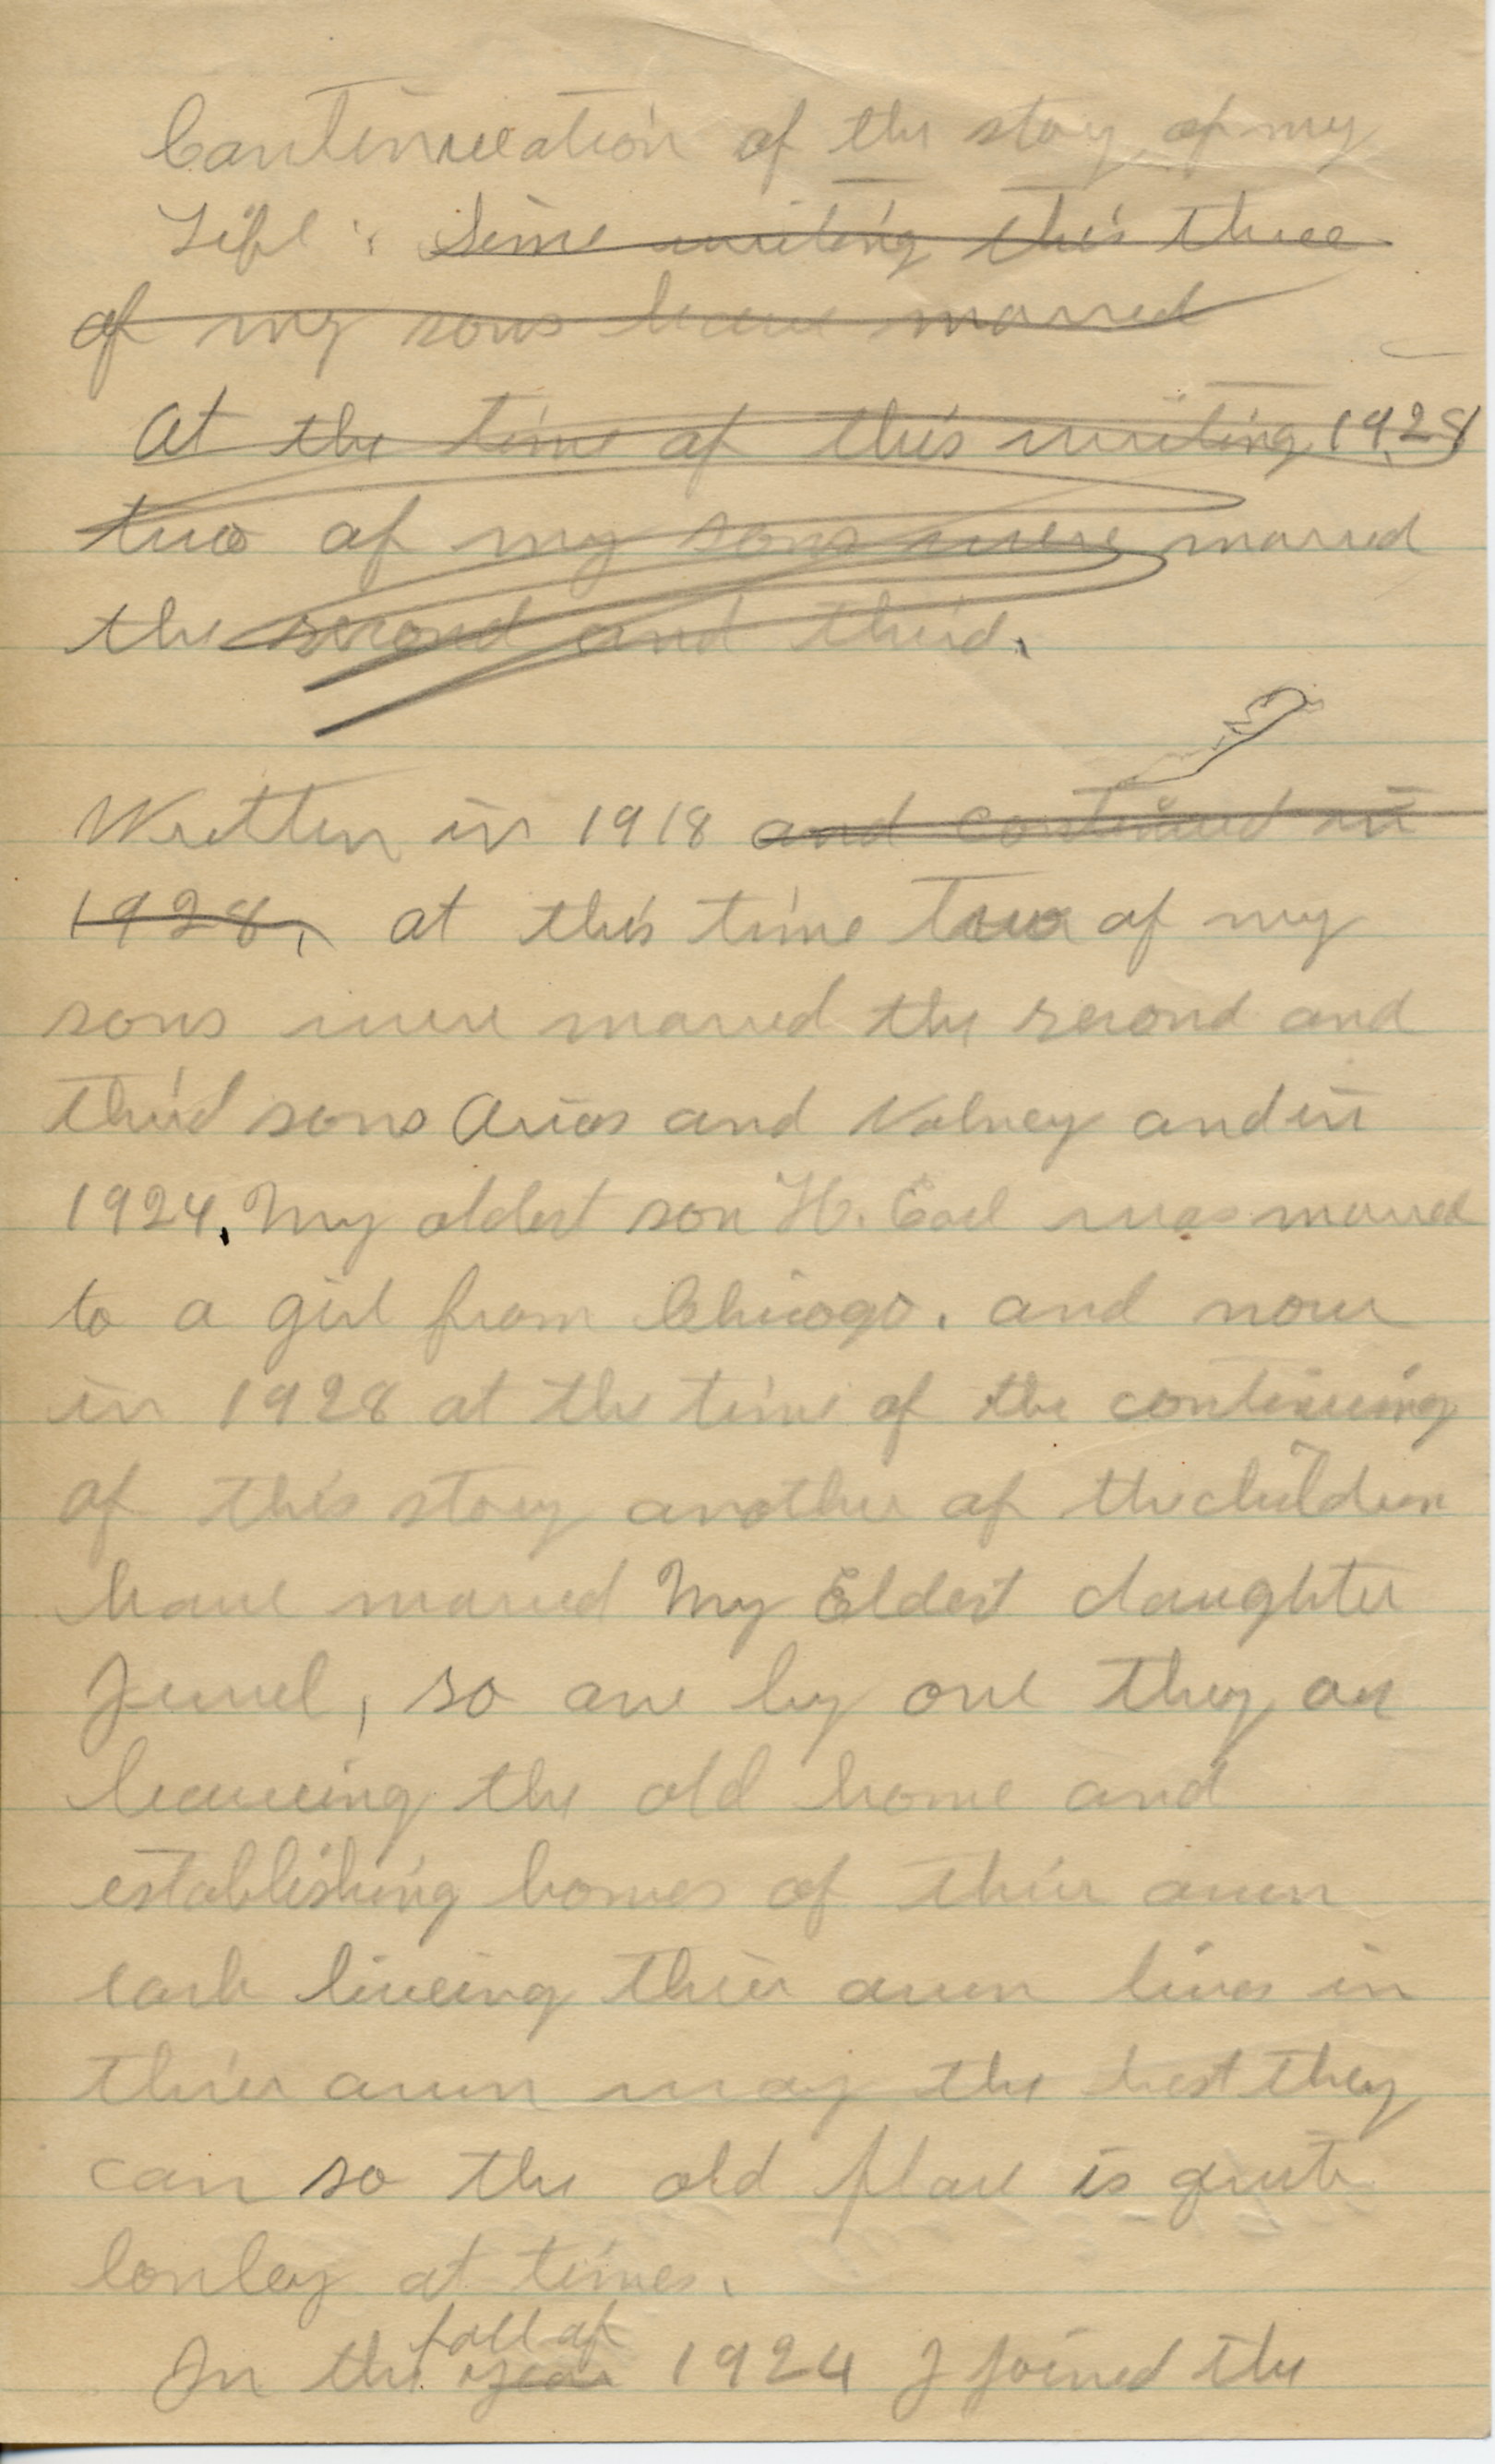 Continuation of the story of my
Life : Since writing this three
of my sons have marred
At the time of this writing 1928
two of my sons were marred
the second and third.
Written in 1918 and continued in
1928, at this time two of my
sons were marred the second and
third sons Arios and Volney and in
1924. My oldest son H. Earl was marred
to a girl from Chicago. and now
in 1928 at the time of the continuing
of this story another of the children
have marred My Eldest daughter
Jewel, so one by one they are
leaveing the old home and
establishing homes of thier own
each liveing thier own lives in
thier own way the best they
can so the old place is quite
lonley at times.
fall of
In the year 1924 I joined the